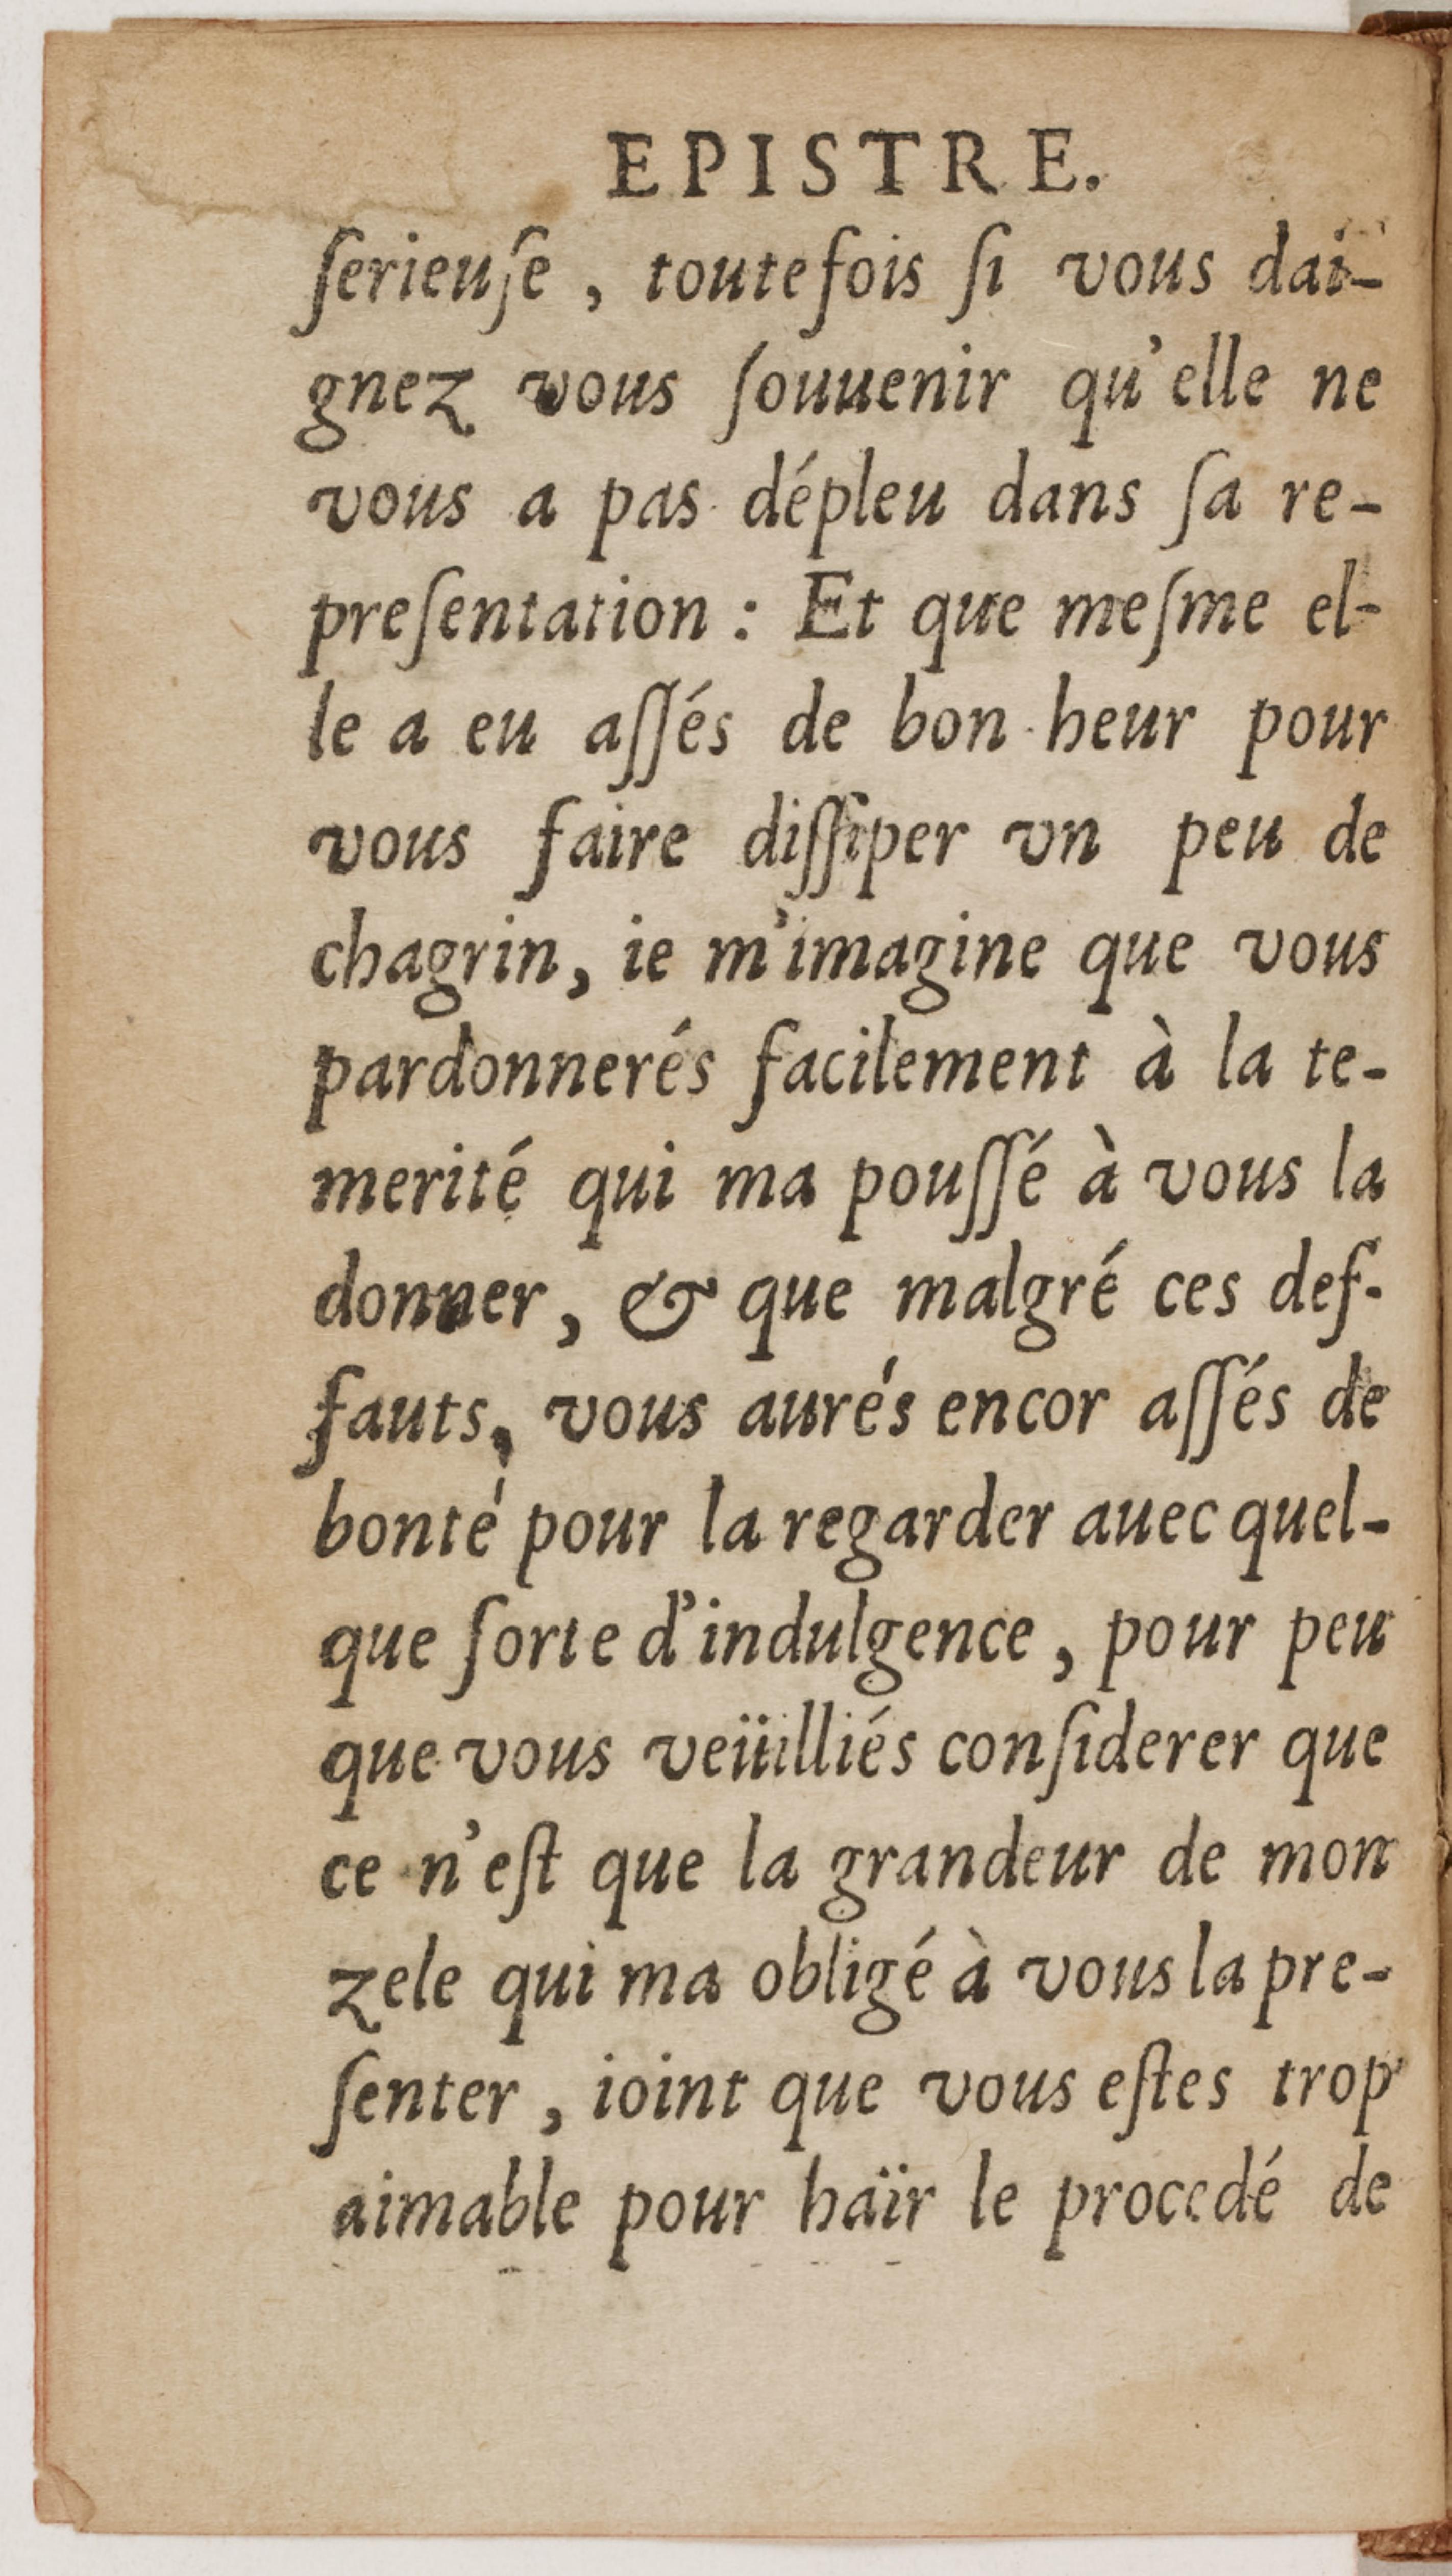 EPISTRE.
ſerieuſe , toutefois ſi vous dai-
gnez vous ſouuenir qu'elle ne
vous a pas dépleu dans ſa re-
preſentation : Et que meſme el-
le a eu aſſés de bon heur pour
vous faire diſſiper vn peu de
chagrin, ie m'imagine que vous
pardonnerés facilement à la te-
merité qui ma pouſſé à vous la
donner, & que malgré ces def-
fauts, vous aurés encor aſſés de
bonté pour la regarder auec quel-
que ſorte d'indulgence, pour peu
que vous veüilliés conſiderer que
ce n'eſt que la grandeur de mon
zele qui ma obligé à vous la pre-
ſenter, ioint que vous eſtes trop
aimable pour haïr le procedé de